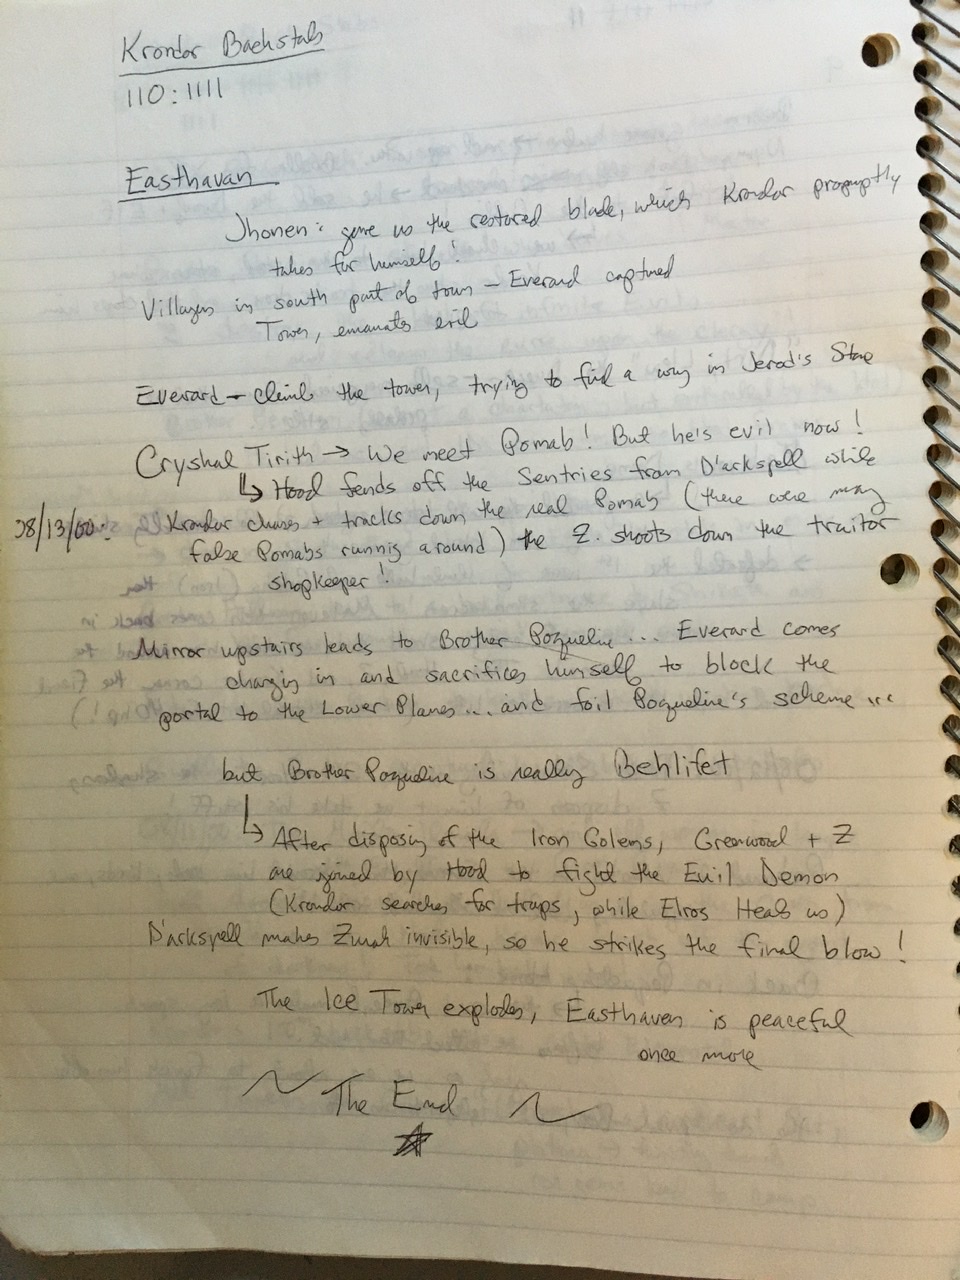 Krondor Backstabs
110:1111
Easthavan
Jhonen: gave us the restored blade, which Krondor propmptly
takes for himself!
Villagers in south part of town - Everard captured
Tower, emanates evil
Everard - climb the tower, trying to find a way in Jerod's Stone
Cryshal Tirith → We meet Pomab! But he's evil now!
↳ Hood fends off the Sentries from D'arkspell while
08/13/00: Krondor chases + tracks down the real Pomab (there were many
false Pomabs runnig around) the Z. shoots down the traitor
shopkeeper!
Mirror upstairs leads to Brother Poqueline... Everard comes
charging in and sacrifices himself to block the
portal to the Lower Planes... and foil Poqueline's scheme...
but Brother Poqueline is really Behlifet
↳ After disposing of the Iron Golems, Greenwood + Z
are joined by Hood to fight the Evil Demon
(Krondor searches for traps, while Elros Heals us)
D'arkspell makes Zmah invisible, so he strikes the final blow!
The Ice Tower explodes, Easthaven is peaceful
once more
~ The End ~